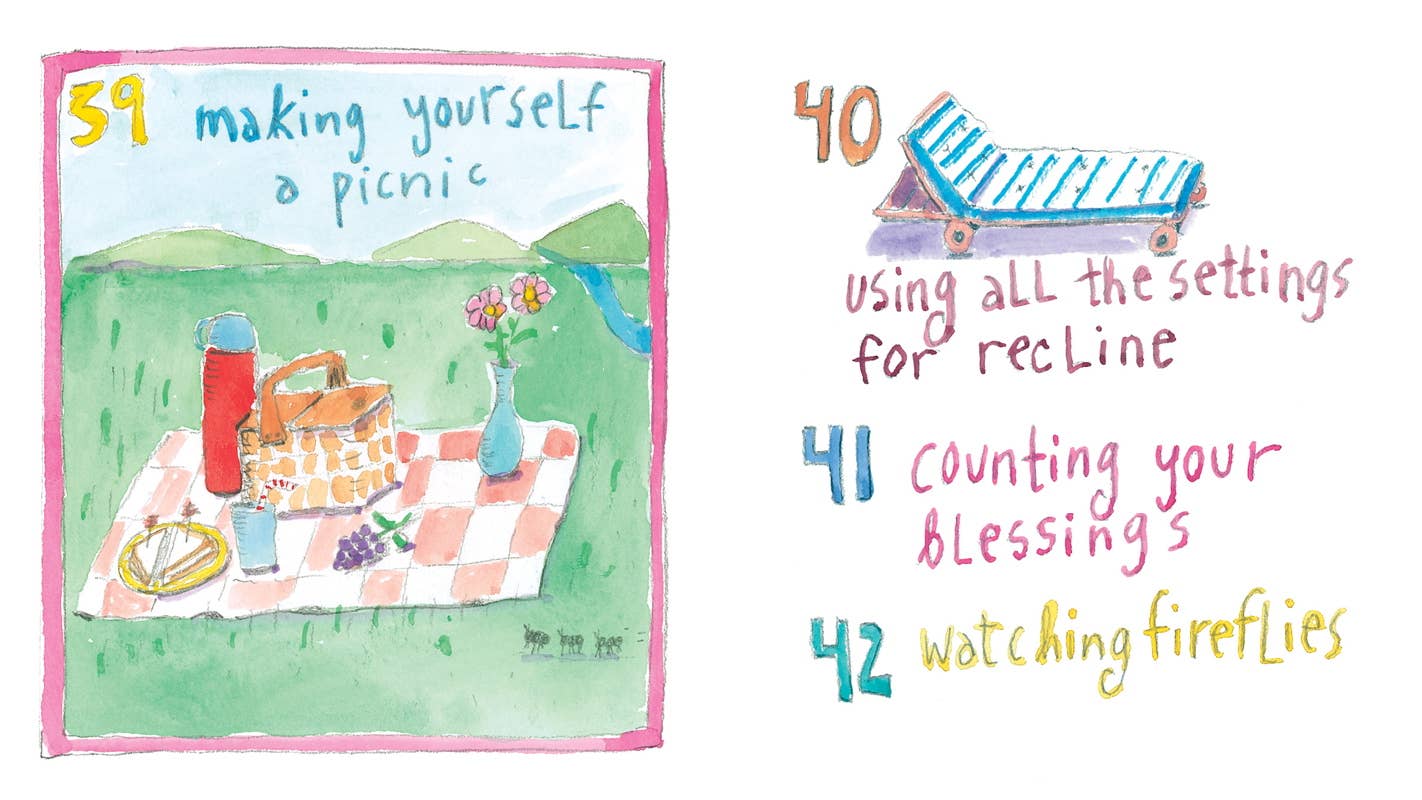 39 making yourself
a picnic
40
using all the settings
for recline
41 counting your
blessings
42 watching fireflies